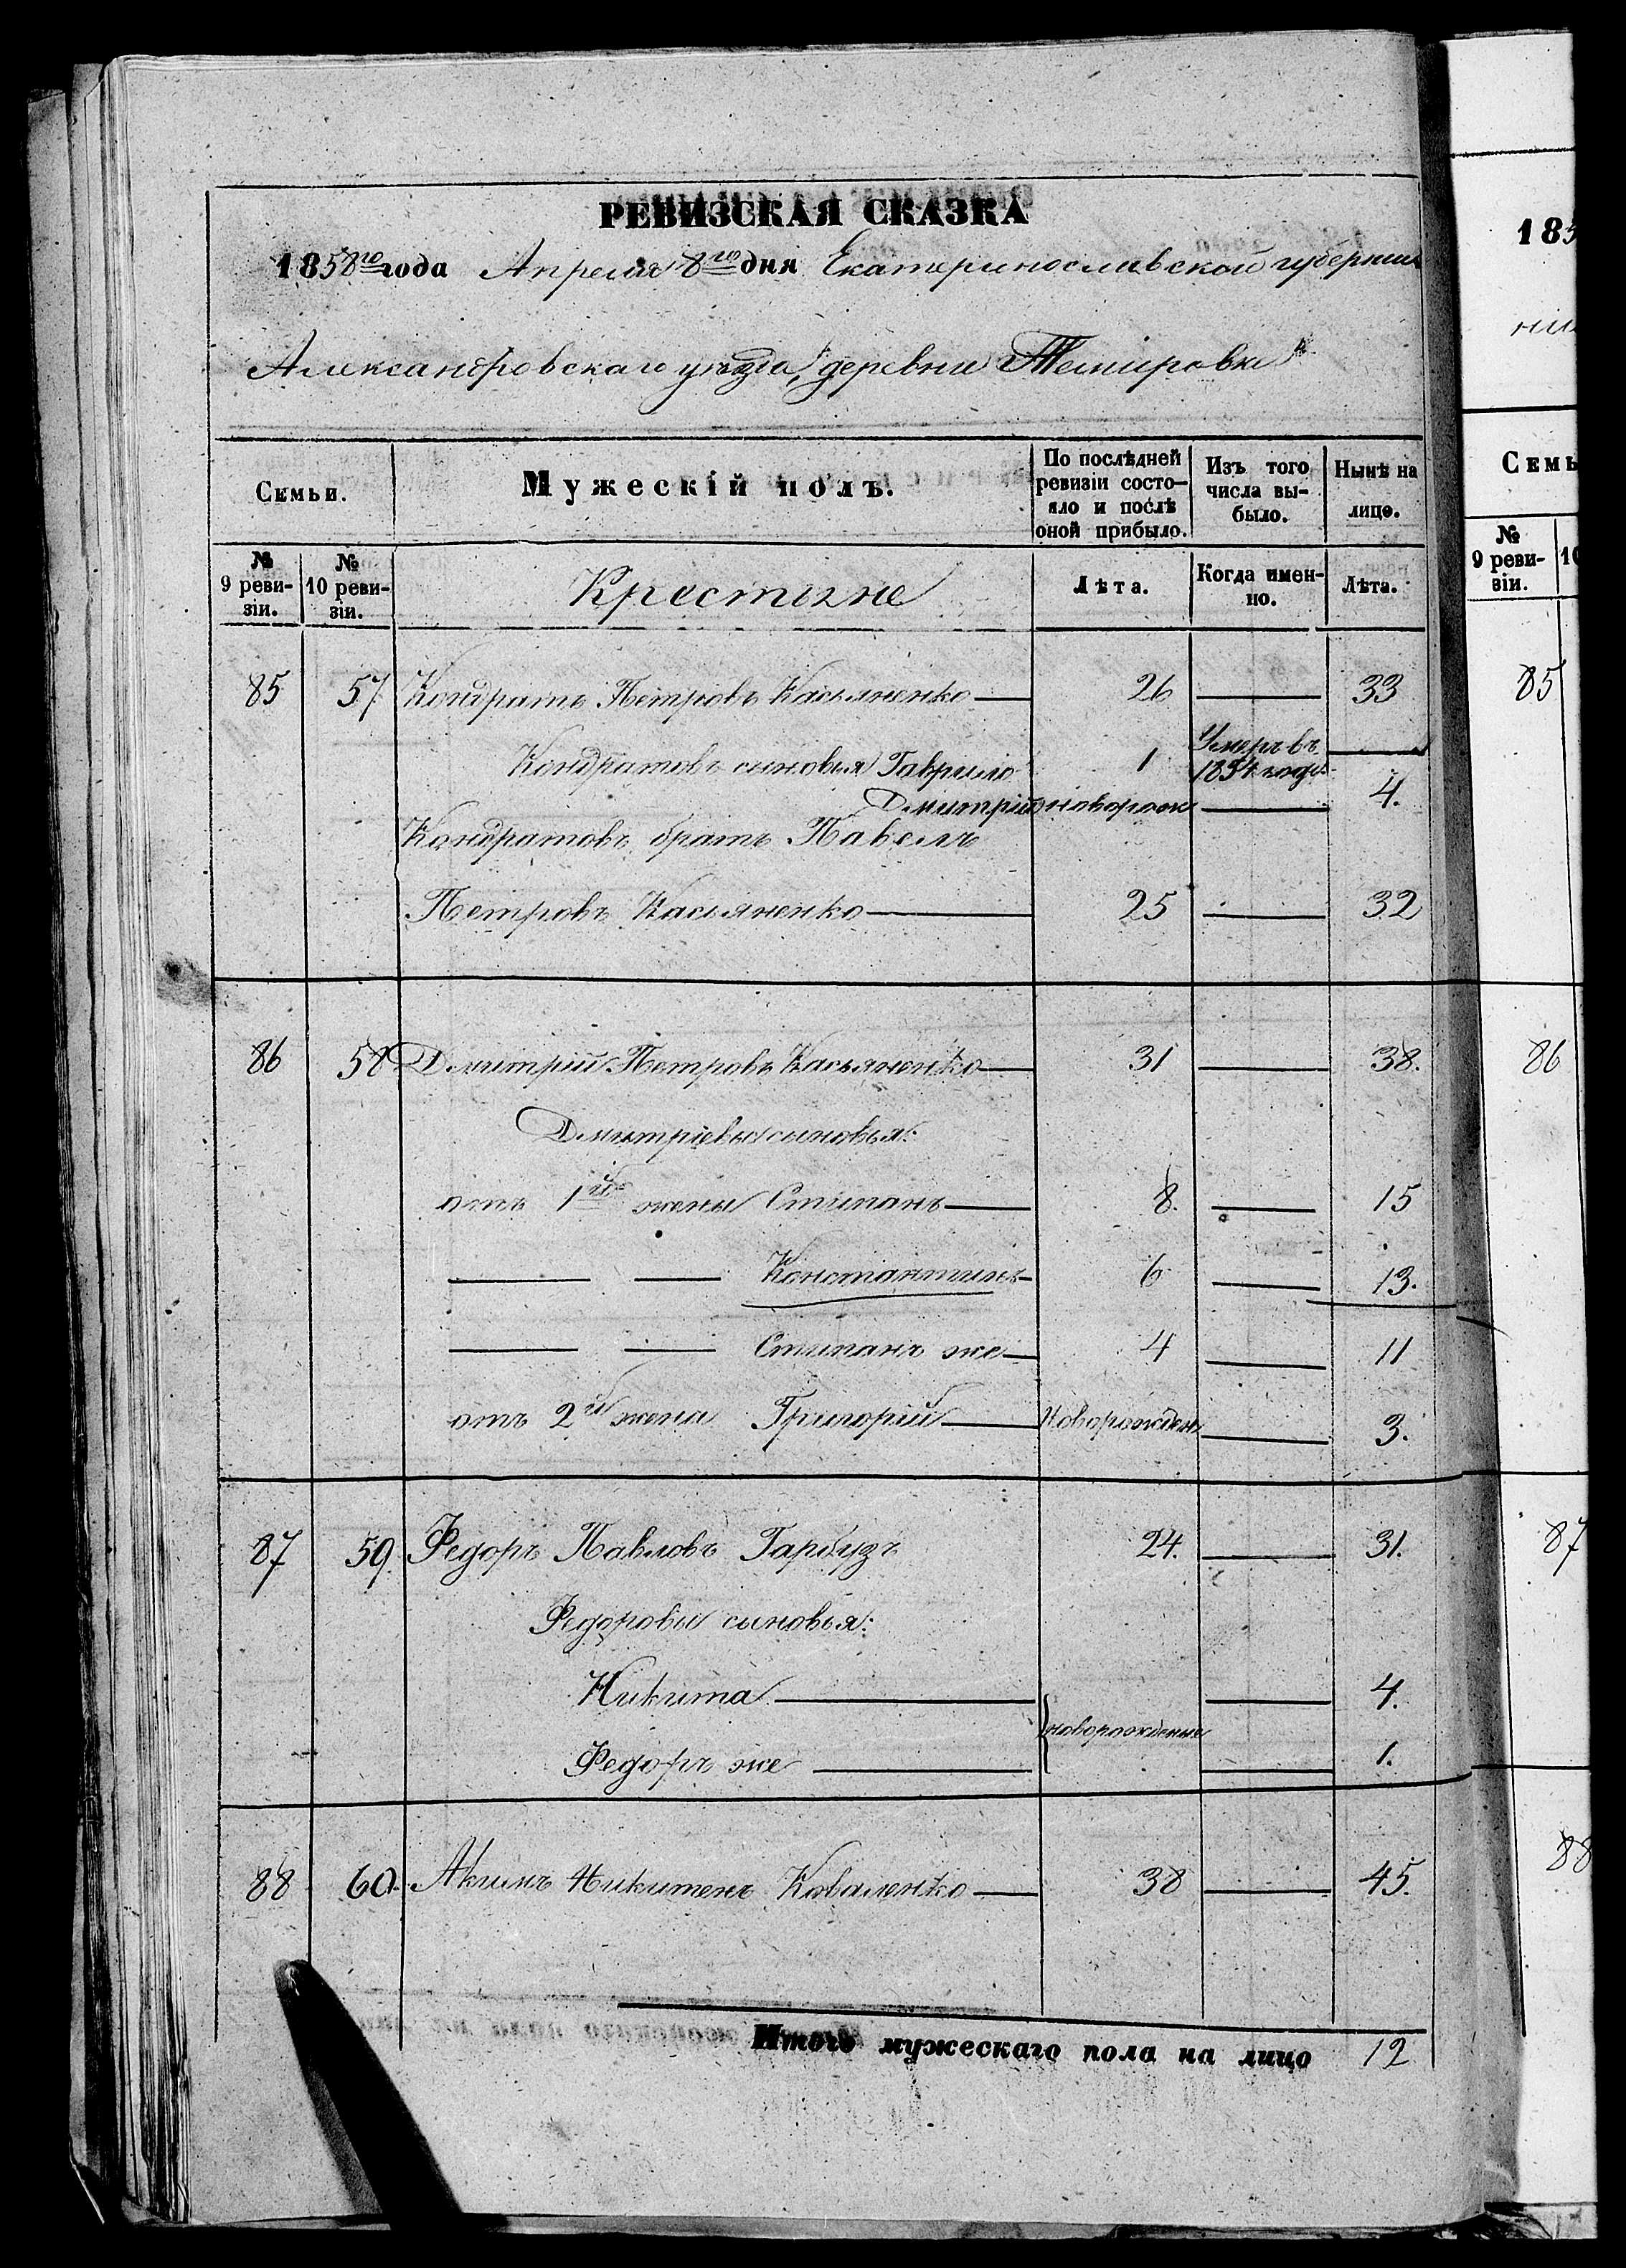 РЕВИЗСКАЯ СКАЗКА
1858го года Апреля 8го дня Екатеринославской губернии
Александровскаго уезда, деревни Темировки
Семьи.
Мужескій полъ.
По послѣдней ревизіи состо-яло и послѣ оной прибыло.
Изъ того числа вы-было.
Нынѣ на лицо.
№ 9 реви-зіи.
№ 10 реви-зіи.
Крестьяне
Лѣта.
Когда имен-но.
Лѣта.
85 57 Кондратъ Петровъ Касьяненко 26 33
Кондратовы сыновья Гаврило 1 Умеръ въ 1854 годе
Дмитрій новорож 4.
Кондратовъ братъ Павелъ
Петровъ Касьяненко 25 32
86 58 Дмитрій Петровъ Касьяненко 31 38.
Дмитріевы сыновья:
отъ 1й жены Стипанъ 8. 15
Константинъ 6 13.
Стипанъ же 4 11
отъ 2й жены Григорий Новорожден 3.
87 59. Федоръ Павловъ Гарбузъ 24. 31.
Федоровы сыновья:
Никита 4.
новорожденые
Федоръ же 1.
88 60. Акимъ Никитенъ Коваленко 38 45.
Итого мужескаго пола на лицо 12
185
Семь
№ 9 реви-зіи.
10
85
86
87
88